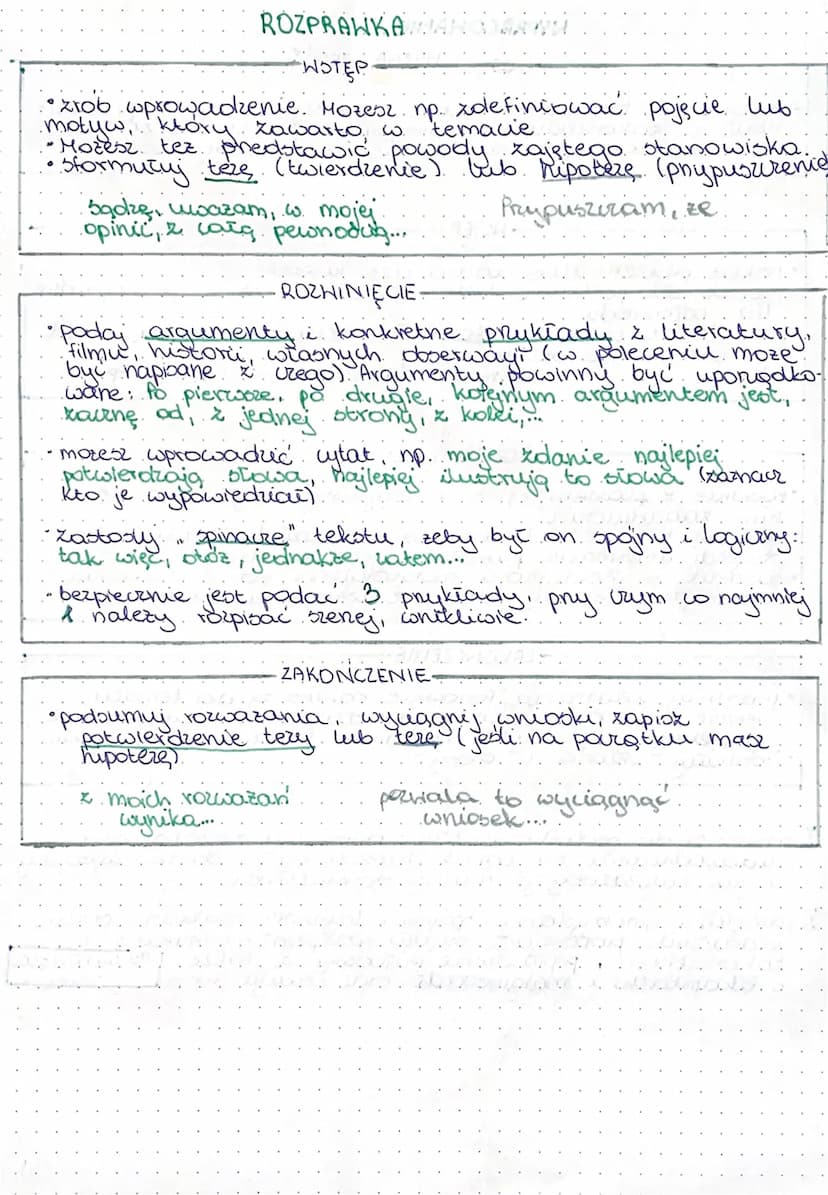 ROZPRAWKA
WSTĘP
• zrób wprowadzenie. Możesz np. zdefiniować pojęcie lub
motyw, który zawarto w temacie
• Możesz też przedstawić powody zajętego stanowiska.
• sformułuj tezę (twierdzenie) lub hipotezę (przypuszczenie)
sądzę, uważam, w mojej
opinii, z całą pewnością...
Przypuszczam, że
ROZWINIĘCIE
• podaj argumenty i konkretne przykłady z literatury,
filmu, historii, własnych obserwacji (w poleceniu może
być napisane z czego). Argumenty powinny być uporządko-
wane: Po pierwsze, po drugie, kolejnym argumentem jest,
zacznę od, z jednej strony, z kolei,...
• możesz wprowadzić cytat, np. moje zdanie najlepiej
potwierdzają słowa, najlepiej ilustrują to słowa (zaznacz
kto je wypowiedział)
• zastosuj „spinacze" tekstu, żeby był on spójny i logiczny:
tak więc, otóż, jednakże, zatem...
• bezpiecznie jest podać 3 przykłady, przy czym co najmniej
1 należy rozpisać szerzej, wnikliwie.
ZAKOŃCZENIE
• podsumuj rozważania, wyciągnij wnioski, zapisz
potwierdzenie tezy lub tezę (jeśli na początku masz
hipotezę)
z moich rozważań
wynika...
pozwala to wyciągnąć
wniosek...